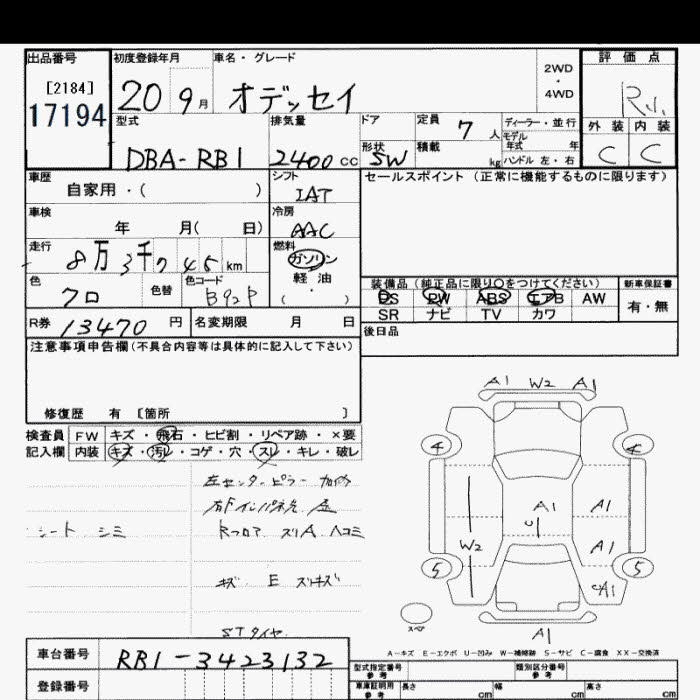 出品番号
初度登録年月
車名・グレード
2WD
・
4WD
評価点
[2184]
17194
20 9月
オデッセイ
R1
型式
排気量
ドア
定員 7人
ディーラー・並行
外装
内装
DBA-RB1
2400cc
形状
SW
積載 kg
モデル
年式 年
ハンドル 左・右
C
C
車歴
自家用・( )
シフト
IAT
セールスポイント(正常に機能するものに限ります)
車検
年 月( 日)
冷房
AAC
走行
8万3千745km
燃料
ガソリン
軽油
( ・ )
色
クロ
色替
色コード
B92P
装備品(純正品に限り○をつけてください)
新車保証書
PS PW ABS エアB AW
有・無
SR ナビ TV カワ
R券 13470円
名変期限 月 日
後日品
注意事項申告欄(不具合内容等は具体的に記入して下さい)
修復歴 有 [箇所 ]
検査員
記入欄
FW キズ・飛石・ヒビ割・リペア跡・×要
内装 キズ・汚レ・コゲ・穴・スレ・キレ・破レ
左センターピラー
シート シミ
Rフロア スリA ヘコミ
キズ E スリキズ
STタイヤ
A1 W2 A1
4
A1
A1
W2
A1
5
5
A1
スペア
A1
A-キズ E-エクボ U-凹み W-補修跡 S-サビ C-腐食 XX-交換済
車台番号
RB1-3423132
型式指定番号
参考
類別区分番号
参考
登録番号
車庫証明用
参考
長さ cm
幅 cm
高さ cm